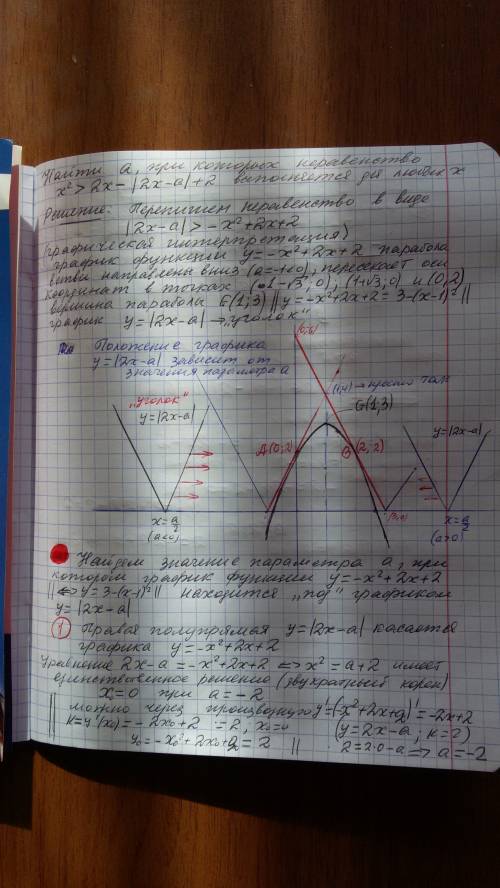 Найти a, при которых неравенство
x² > 2x - |2x-a| + 2 выполняется для любых x
Решение: Перепишем неравенство в виде
|2x-a| > -x²+2x+2
(графическая интерпретация)
график функции y = -x²+2x+2 парабола
ветви направлены вниз (a=-1<0), пересекает оси
координат в точках (1-√3; 0), (1+√3; 0) и (0; 2)
вершина параболы G(1; 3) || y = -x²+2x+2 = 3-(x-1)² ||
график y = |2x-a| → „уголок“
Положение графика
y = |2x-a| зависит от
значения параметра a
(0; 6)
(1; 4) → просто так
G(1; 3)
„Уголок“
y = |2x-a|
A(0; 2)
B(2; 2)
y = |2x-a|
x = a/2
(a<0)
(3; 0)
x = a/2
(a>0)
Найдем значение параметра a, при
котором график функции y = -x²+2x+2
|| <=> y = 3-(x-1)² || находится „под“ графиком
y = |2x-a|
1 Правая полупрямая y = |2x-a| касается
графика y = -x²+2x+2
Уравнение 2x-a = -x²+2x+2 <=> x² = a+2 имеет
единственное решение (двухкратный корень)
x = 0 при a = -2
|| можно через производную y' = (-x²+2x+2)' = -2x+2
k = y'(x₀) = -2x₀+2 = 2, x₀ = 0 (y = 2x-a; k = 2)
y₀ = -x₀²+2x₀+2 = 2 || 2 = 2·0-a => a = -2